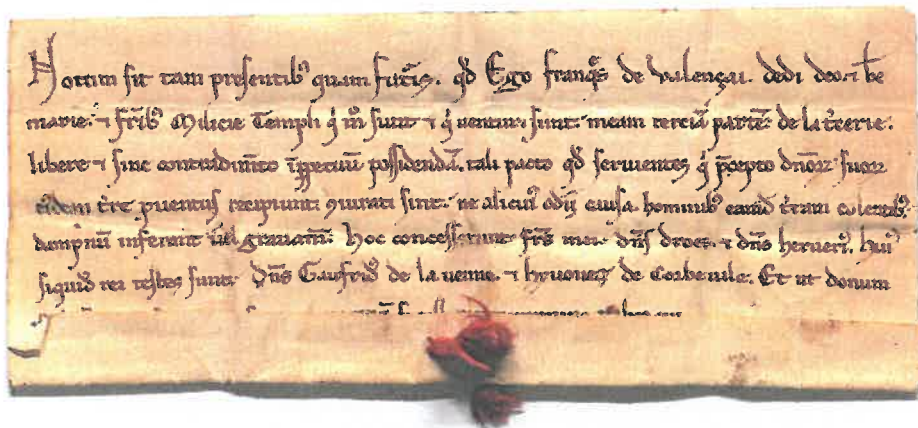 Notum sit tam presentibꝰ quam futᷓis. qd̓ Ego franqͦs de valençai. dedi deo. ⁊ be
marie. ⁊ fr̄ibꝰ Milicie Templi q̓ m̊ sunt ⁊ q̓ venturi sunt. meam terciā partē de la t̓rerie.
libere ⁊ sine contradim̄to īppetuū possidendā. tali pacto qd̓ servientes q̓ p̄cepto dn̄oꝝ suoꝝ
eidem t̓re pventus recipiunt. iurati sint. ne alicuiꝰ odii causa. hominibꝰ eand̄ t̓ram colentibꝰ.
dampnū inferant ul̄ gravam̄. hoc concesserunt fr̄s mei. dn̄s droes. ⁊ dn̄s herveiꝰ. huiꝰ
siquid̄ rei testes sunt dn̄s Gaufridꝰ de la venne. ⁊ hervoues de Corbevile. Et ut donum